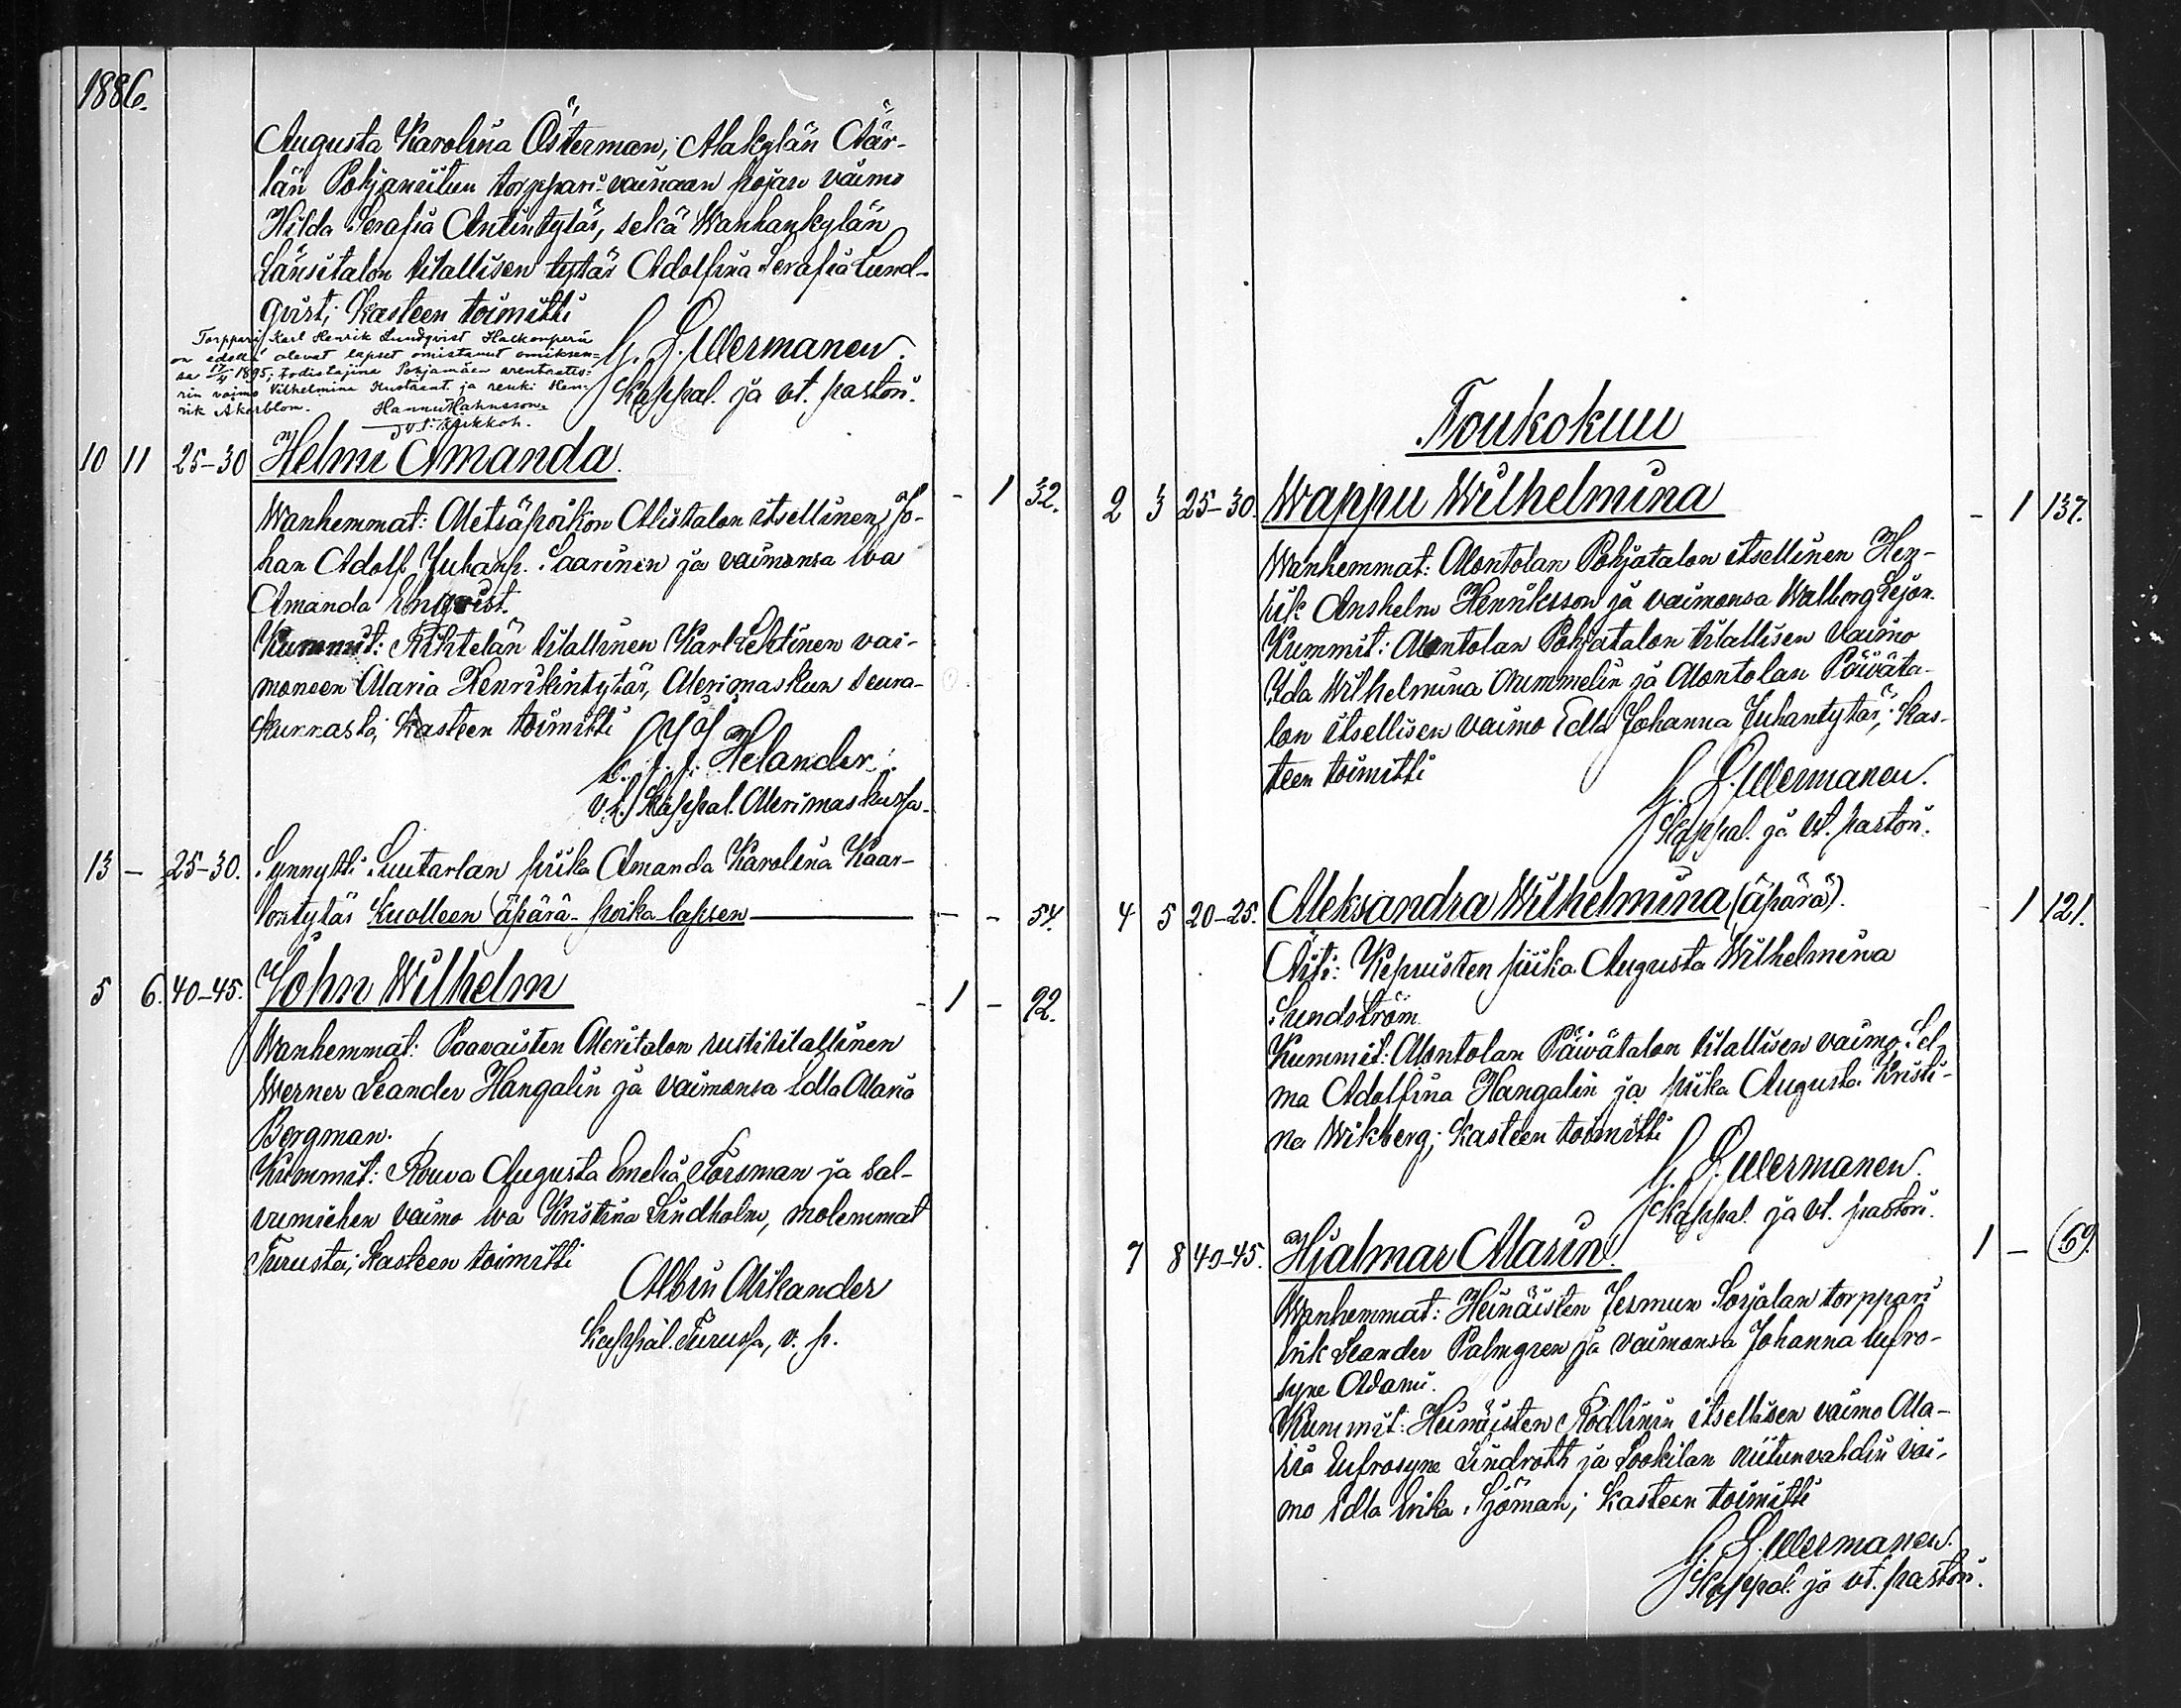 1886.
Augusta Karolina Österman; Alakylän Äär-
län Pohjaniitun torppari-vainaan pojan vaimo
Hilda Serafia Antintytär, sekä Wanhankylän
Länsitalon tilallisen tytär Adolfina Serafia Lund-
qvist; Kasteen toimitti
G. S. Wermanen.
Kappal. ja vt. pastori.
Torppari Karl Henrik Lundqvist Halkonperä
on edellä olevat lapset omistanut omiksen=
sa 17/4 1895; todistajina Pohjamäen arentaato-
rin vaimo Vilhelmina Kustaant. ja renki Hen-
rik Akerblom.
Hannu Hahnsson.
v.t. kirkkoh.
10 11 25-30 Helmi Amanda. - 1 32.
Wanhemmat: Metsäpoikon Alistalon itsellinen Jo-
han Adolf Juhanp. Saarinen ja vaimonsa Eva
Amanda Engqvist.
Kummit: Riihtelän tilallinen Karl Lehtinen vai-
moneen Maria Henrikintytär, Merimaskun seura-
kunnasta; Kasteen toimitti
K. J. J. Helander.
v.t. Kappal. Merimaskussa.
13 - 25-30. Synnytti Suutarlan piika Amanda Karolina Kaar-
lontytär Kuolleen äpärä-poika-lapsen - - 54.
5 6. 40-45. John Wilhelm - 1 - 92.
Wanhemmat: Paavaisten Meritalon rustitilallinen
Werner Leander Hangelin ja vaimonsa Edla Maria
Borgman.
Kummit: Rouva Augusta Emelia Forsman ja sal-
vumiehen vaimo Eva Kristina Lindholm, molemmat
Turusta; Kasteen toimitti
Albin Mikander
Kappal. Turussa, v. p.
Toukokuu
2 3 25-30. Wappu Wilhelmina - 1 137.
Wanhemmat: Montolan Pohjatalon itsellinen Hen-
rik Anshelm Henriksson ja vaimonsa Walborg Lejon.
Kummit: Montolan Pohjatalon tilallisen vaimo
Ida Wilhelmina Nummelin ja Montolan Päiväta-
lon itsellisen vaimo Edla Johanna Juhantytär; Kas-
teen toimitti
G. S. Wermanen.
Kappal. ja vt. pastori.
4 5 20-25. Aleksandra Wilhelmina (äpärä). - 1 121.
Äiti: Kepuisten piika Augusta Wilhelmina
Sundström.
Kummit: Montolan Päivätalon tilallisen vaimo Sel-
ma Adolfina Hangelin ja piika Augusta Kristi-
na Wikberg; Kasteen toimitti
G. S. Wermanen.
Kappal. ja vt. pastori.
7 8 40-45. Hjalmar Marin. 1 - 69.
Wanhemmat: Heinäisten Jermun Sorjalan torppari
Erik Leander Palmgren ja vaimonsa Johanna Eufro-
syne Adami.
Kummit: Heinäisten Rodlinin itsellisen vaimo Ma-
ria Eufrosyne Lindroth ja Lookilan niitunvahdin vai-
mo Edla Erika Sjöman; Kasteen toimitti
G. S. Wermanen.
Kappal. ja vt. pastori.